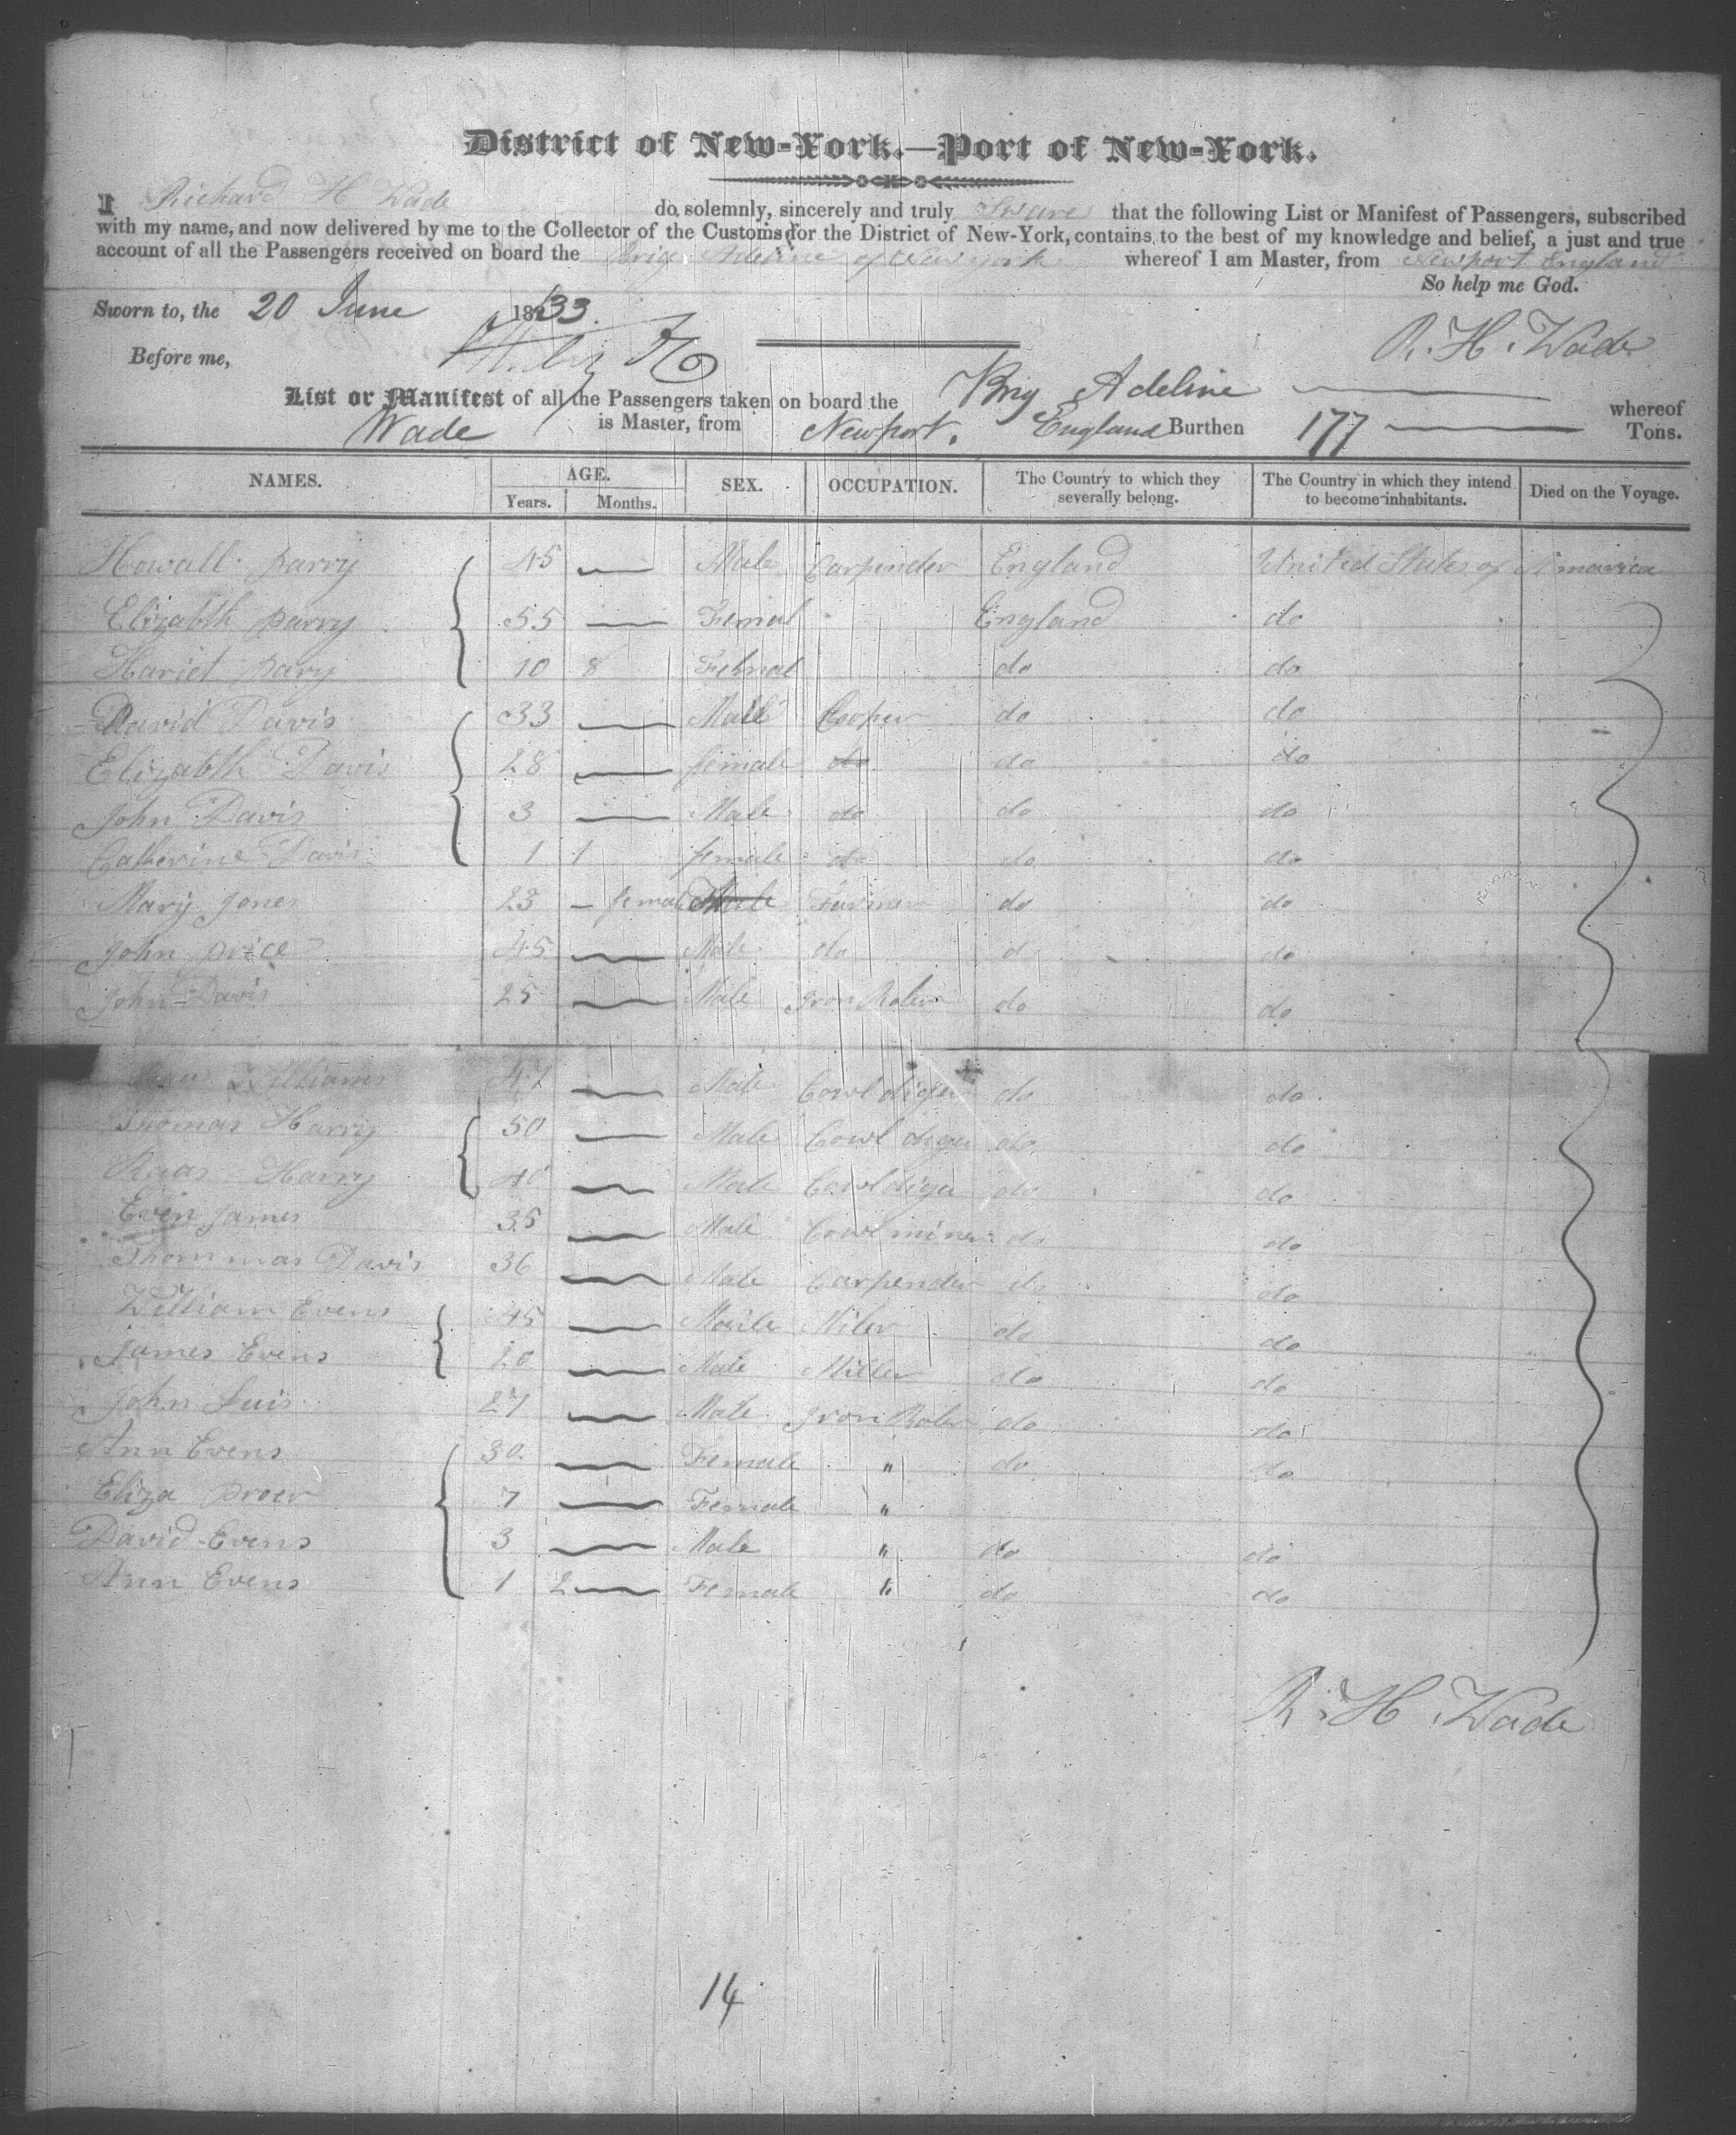 District of New-York.—Port of New-York.
I Richard H Wade do, solemnly, sincerely and truly Sware that the following List or Manifest of Passengers, subscribed
with my name, and now delivered by me to the Collector of the Customs for the District of New-York, contains, to the best of my knowledge and belief, a just and true
account of all the Passengers received on board the Brig Adeline of New york whereof I am Master, from Newport England
So help me God.
Sworn to, the 20 June 1833.
R. H. Wade
Before me,
List or Manifest of all the Passengers taken on board the Brig Adeline whereof
Wade is Master, from Newport. England Burthen 177 Tons.
NAMES. AGE. SEX. OCCUPATION. The Country to which they severally belong. The Country in which they intend to become inhabitants. Died on the Voyage.
Years. Months.
Howall parry 45 — Male Carpender England United States of Amarica
Elizabth parry 55 — Femal England do
Hariet pary 10 8 Femal do do
David Davis 33 — Male Cooper do do
Elizabth Davis 28 — female do do do
John Davis 3 — Male do do do
Catherine Davis 1 1 female do do do
Mary Jones 23 — female Farmer do do
John price 45 — Male do do do
John Davis 25 — Male Iron Roler do do
Williams 47 — Male Cowl diger do do
Thomas Harry 50 — Male Cowl diger do do
Harry — Male Cowl diger do do
Even James 35 — Male Cowl miner do do
Thommas Davis 36 — Male Carpender do do
William Evens 45 — Male Miler do do
James Evens — Male Miller do do
John Luis 27 — Male Iron Roler do do
Ann Evens 30 — Female " do do
Eliza 7 — Female "
David Evens 3 — Male " do do
Ann Evens 1 2 — Female " do do
R. H. Wade
14